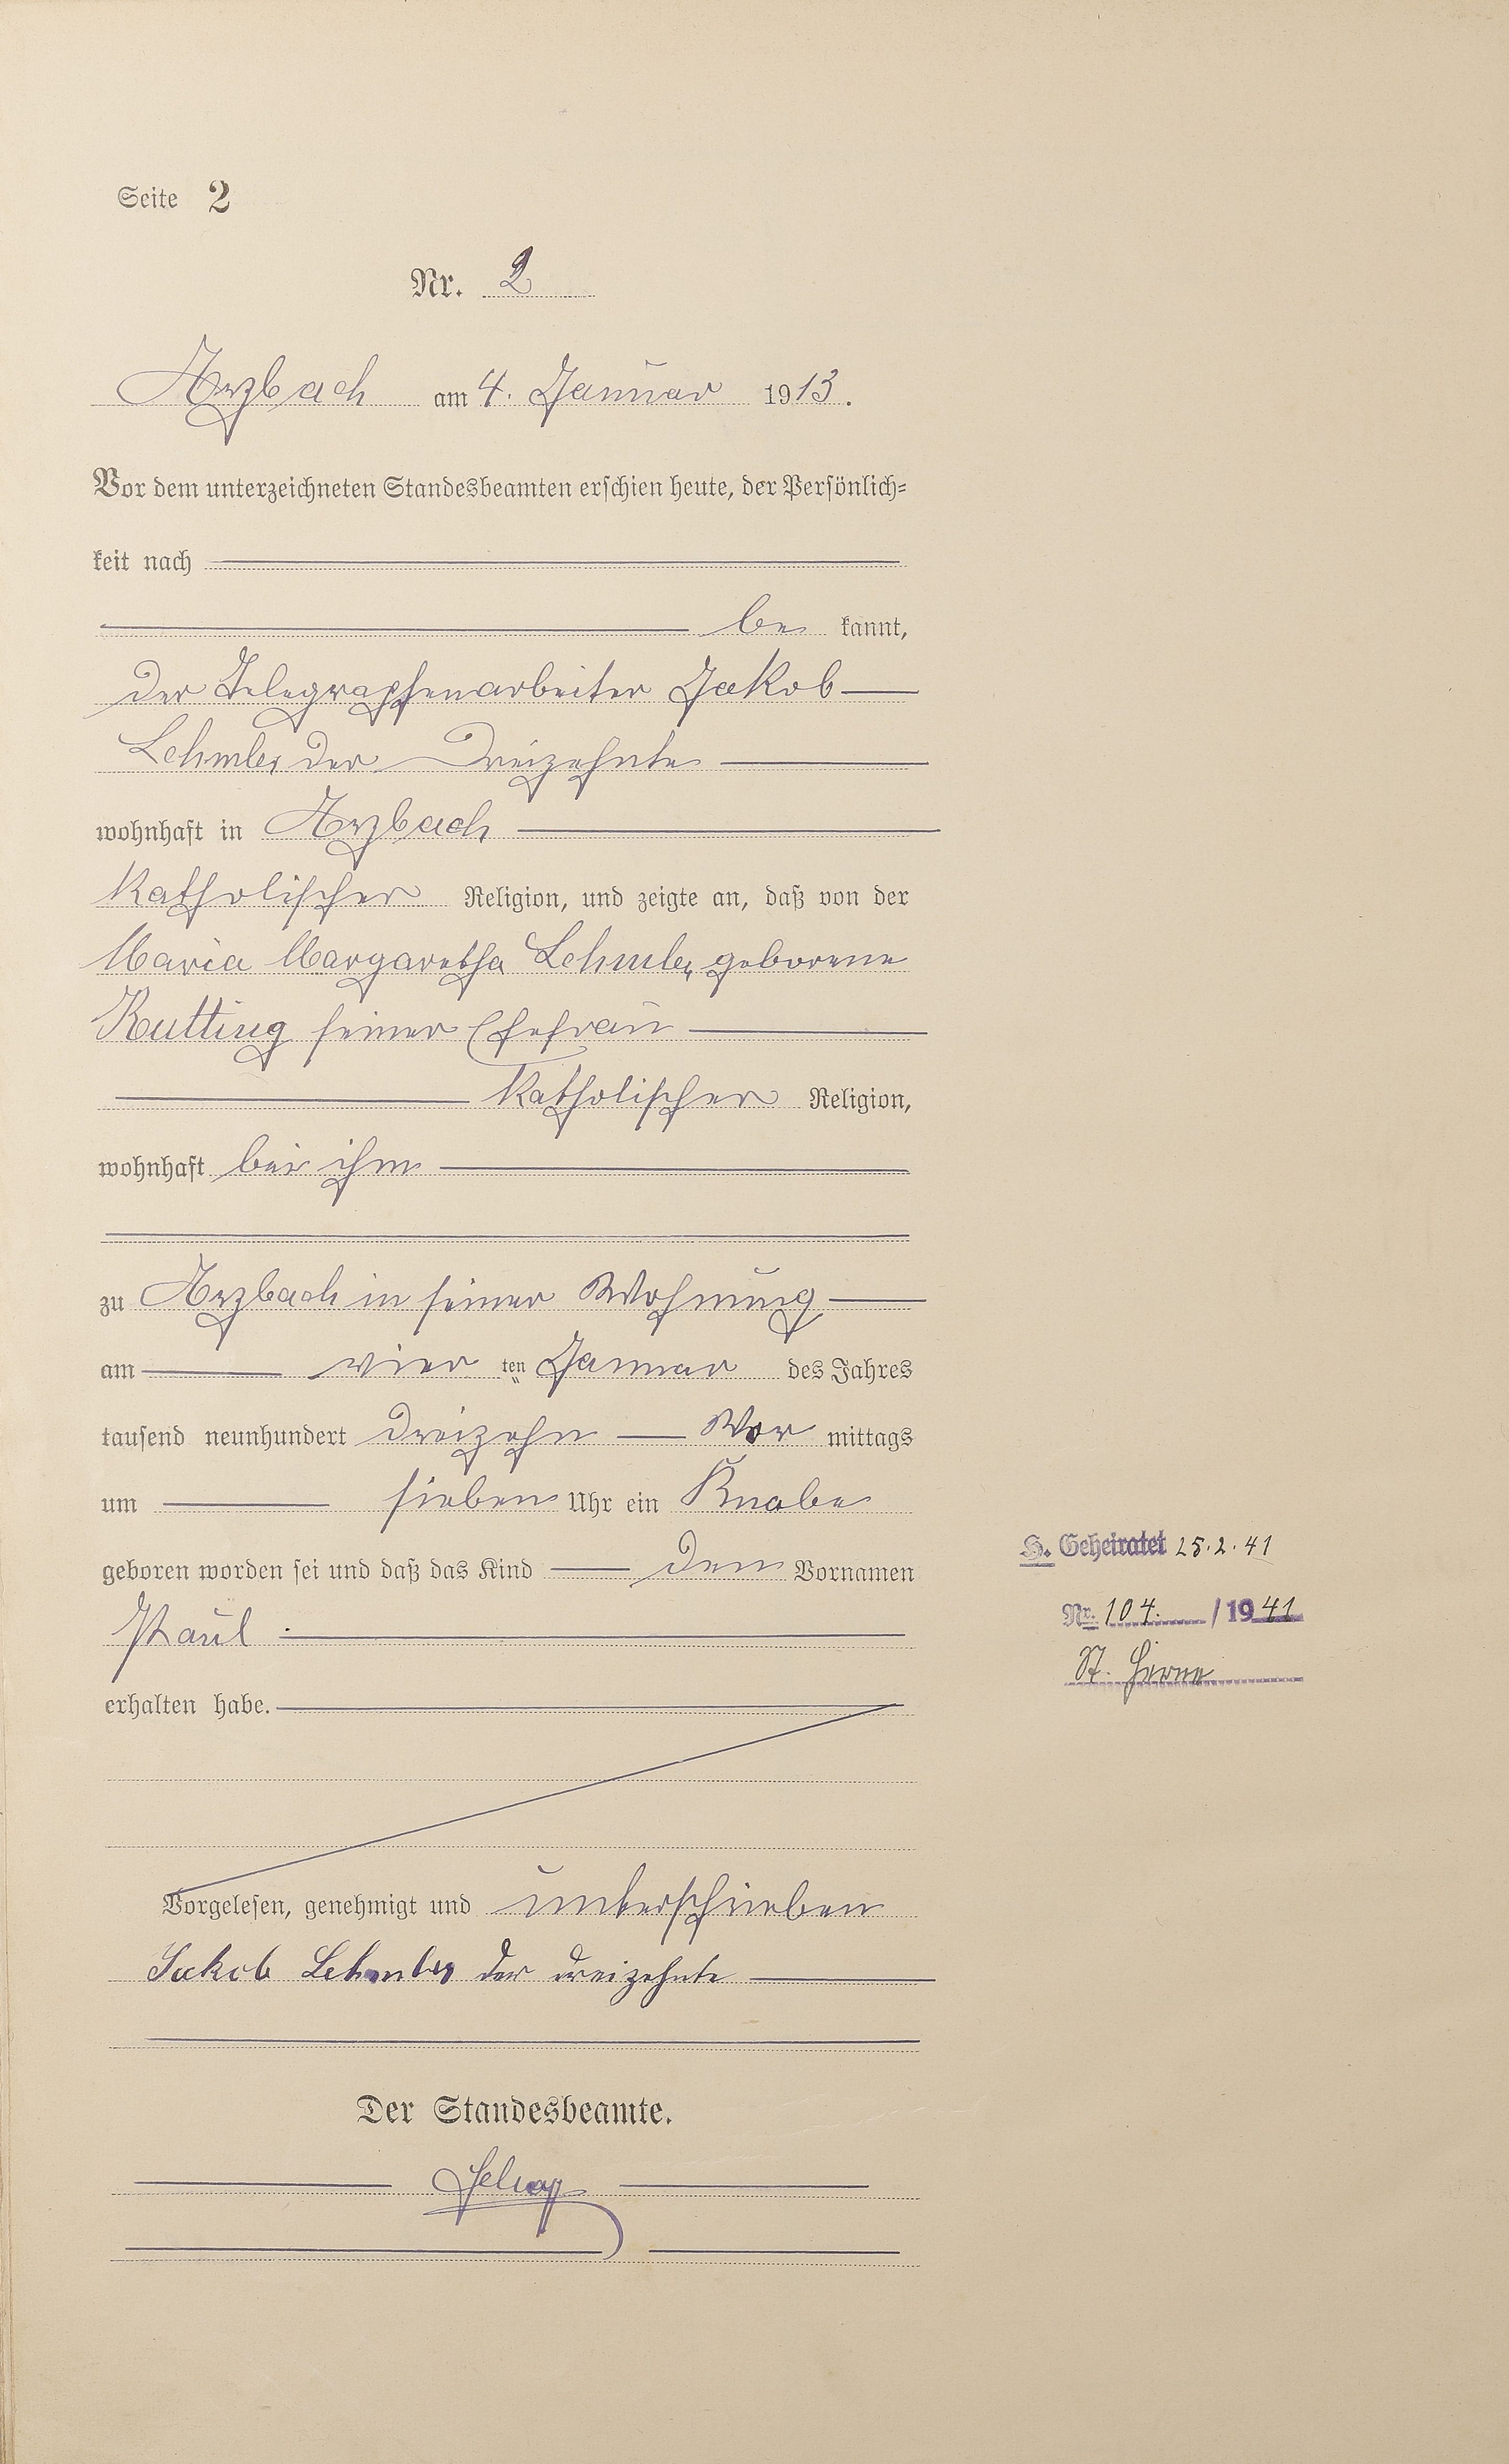 Seite 2
Nr. 2
Arzbach am 4. Januar 1913.
Vor dem unterzeichneten Standesbeamten erschien heute, der Persönlich-
keit nach
be kannt,
der Telegraphenarbeiter Jakob
Lehmler der Dreizehnte
wohnhaft in Arzbach
katholischer Religion, und zeigte an, daß von der
Maria Margaretha Lehmler geborene
Rutting seiner Ehefrau
katholischer Religion,
wohnhaft bei ihm
zu Arzbach in seiner Wohnung
am vier ten Januar des Jahres
tausend neunhundert dreizehn Vor mittags
um sieben Uhr ein Knabe
geboren worden sei und daß das Kind den Vornamen
Paul
erhalten habe.
H. Geheiratet 25.2.41
Nr. 104. / 1941
St. Herne
Vorgelesen, genehmigt und unterschrieben
Jakob Lehmler der dreizehnte
Der Standesbeamte.